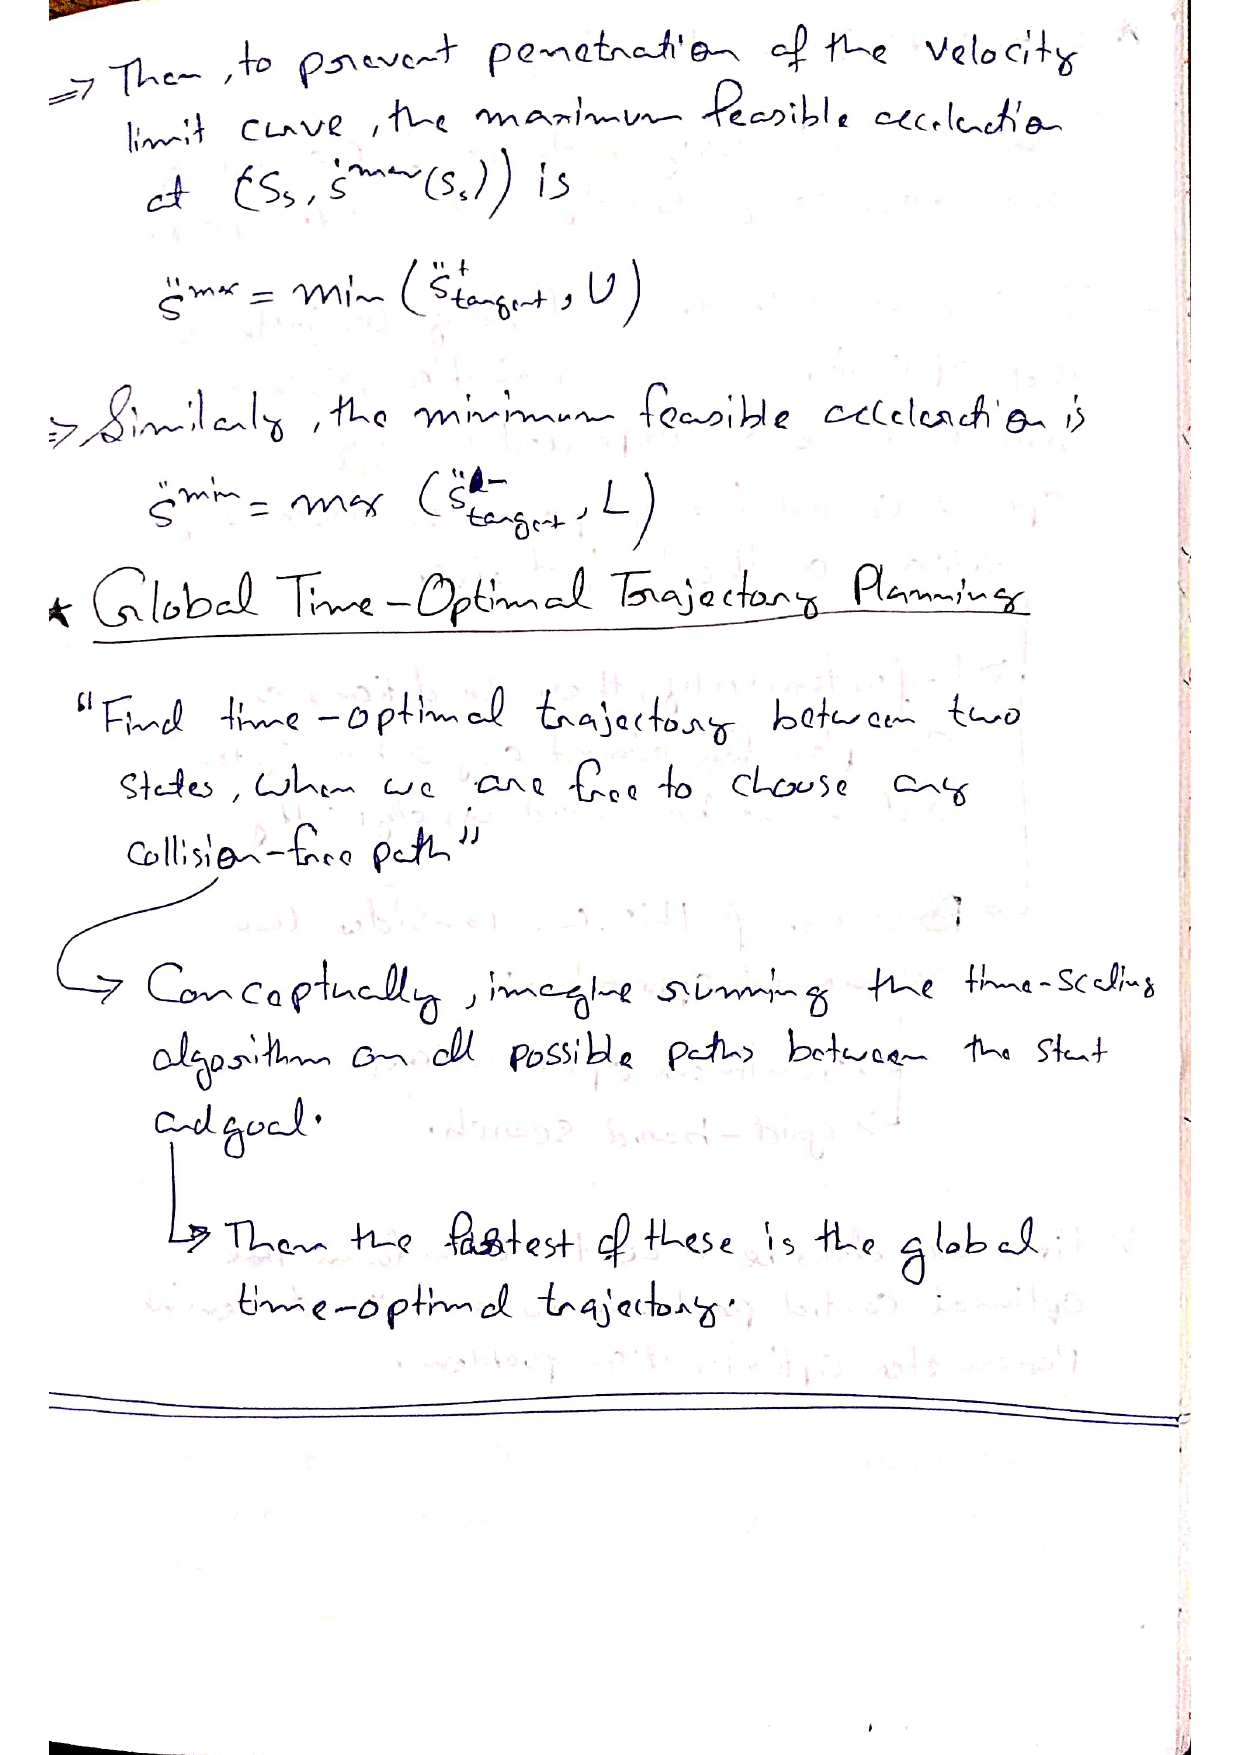 ⇒ Then, to prevent penetration of the velocity
limit curve, the maximum feasible acceleration
at (Ss, ṡmax(Ss)) is
s̈max = min (s̈+tangent, U)
⇒ Similarly, the minimum feasible acceleration is
s̈min = max (s̈-tangent, L)
* Global Time-Optimal Trajectory Planning
"Find time-optimal trajectory between two
states, when we are free to choose any
collision-free path"
→ Conceptually, imagine running the time-scaling
algorithm on all possible paths between the start
and goal.
→ Then the fastest of these is the global
time-optimal trajectory.